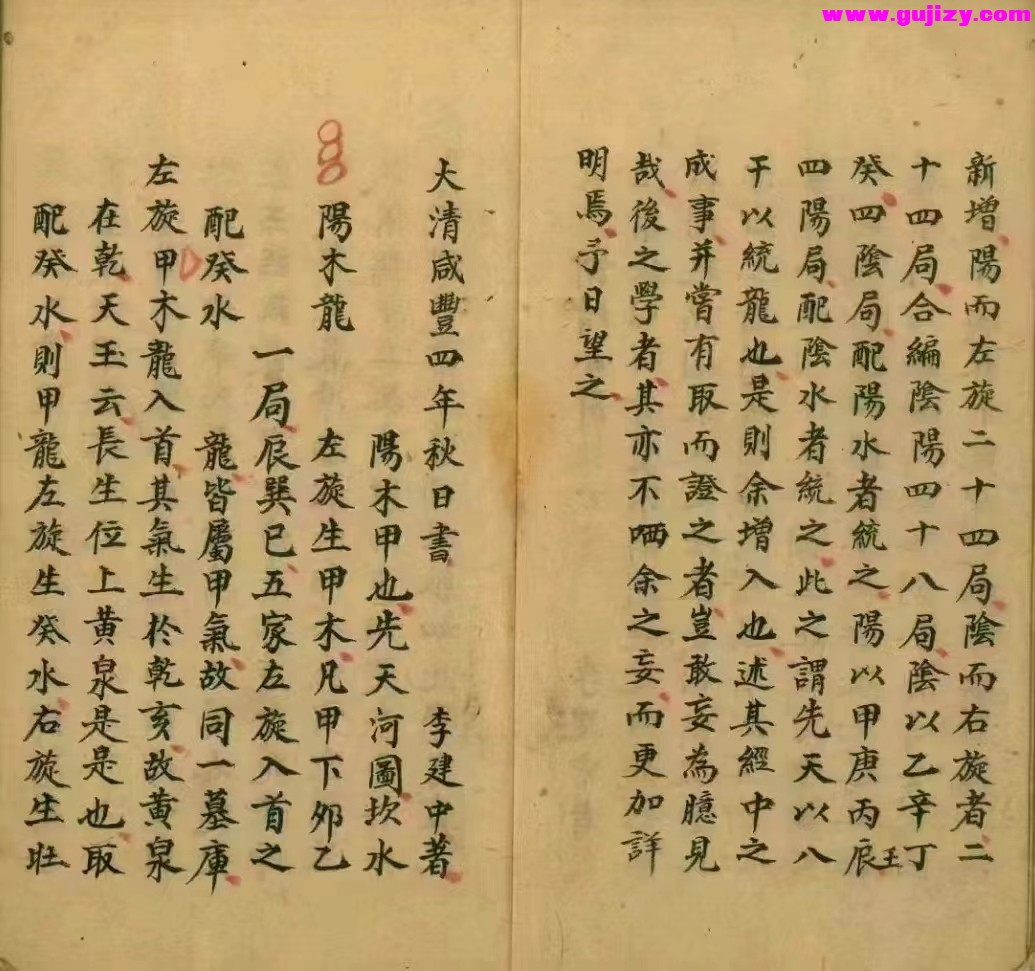 www.gujizy.com
新增陽而左旋二十四局陰而右旋者二
十四局合編陰陽四十八局陰以乙辛丁
癸四陰局配陽水者統之陽以甲庚丙辰壬
四陽局配陰水者統之此之謂先天以八
干以統龍也是則余增入也述其經中之
成事并嘗有取而證之者豈敢妄為臆見
哉後之學者其亦不哂余之妄而更加詳
明焉予日望之
大清咸豐四年秋日書 李建中著
陽木甲也先天河圖坎水
陽木龍 左旋生甲木凡甲下夘乙
一局辰巽巳五家左旋入首之
配癸水 龍皆屬甲氣故同一墓庫
左旋甲木龍入首其氣生於乾亥故黃泉
在乾天玉云長生位上黃泉是是也取
配癸水則甲龍左旋生癸水右旋生壯